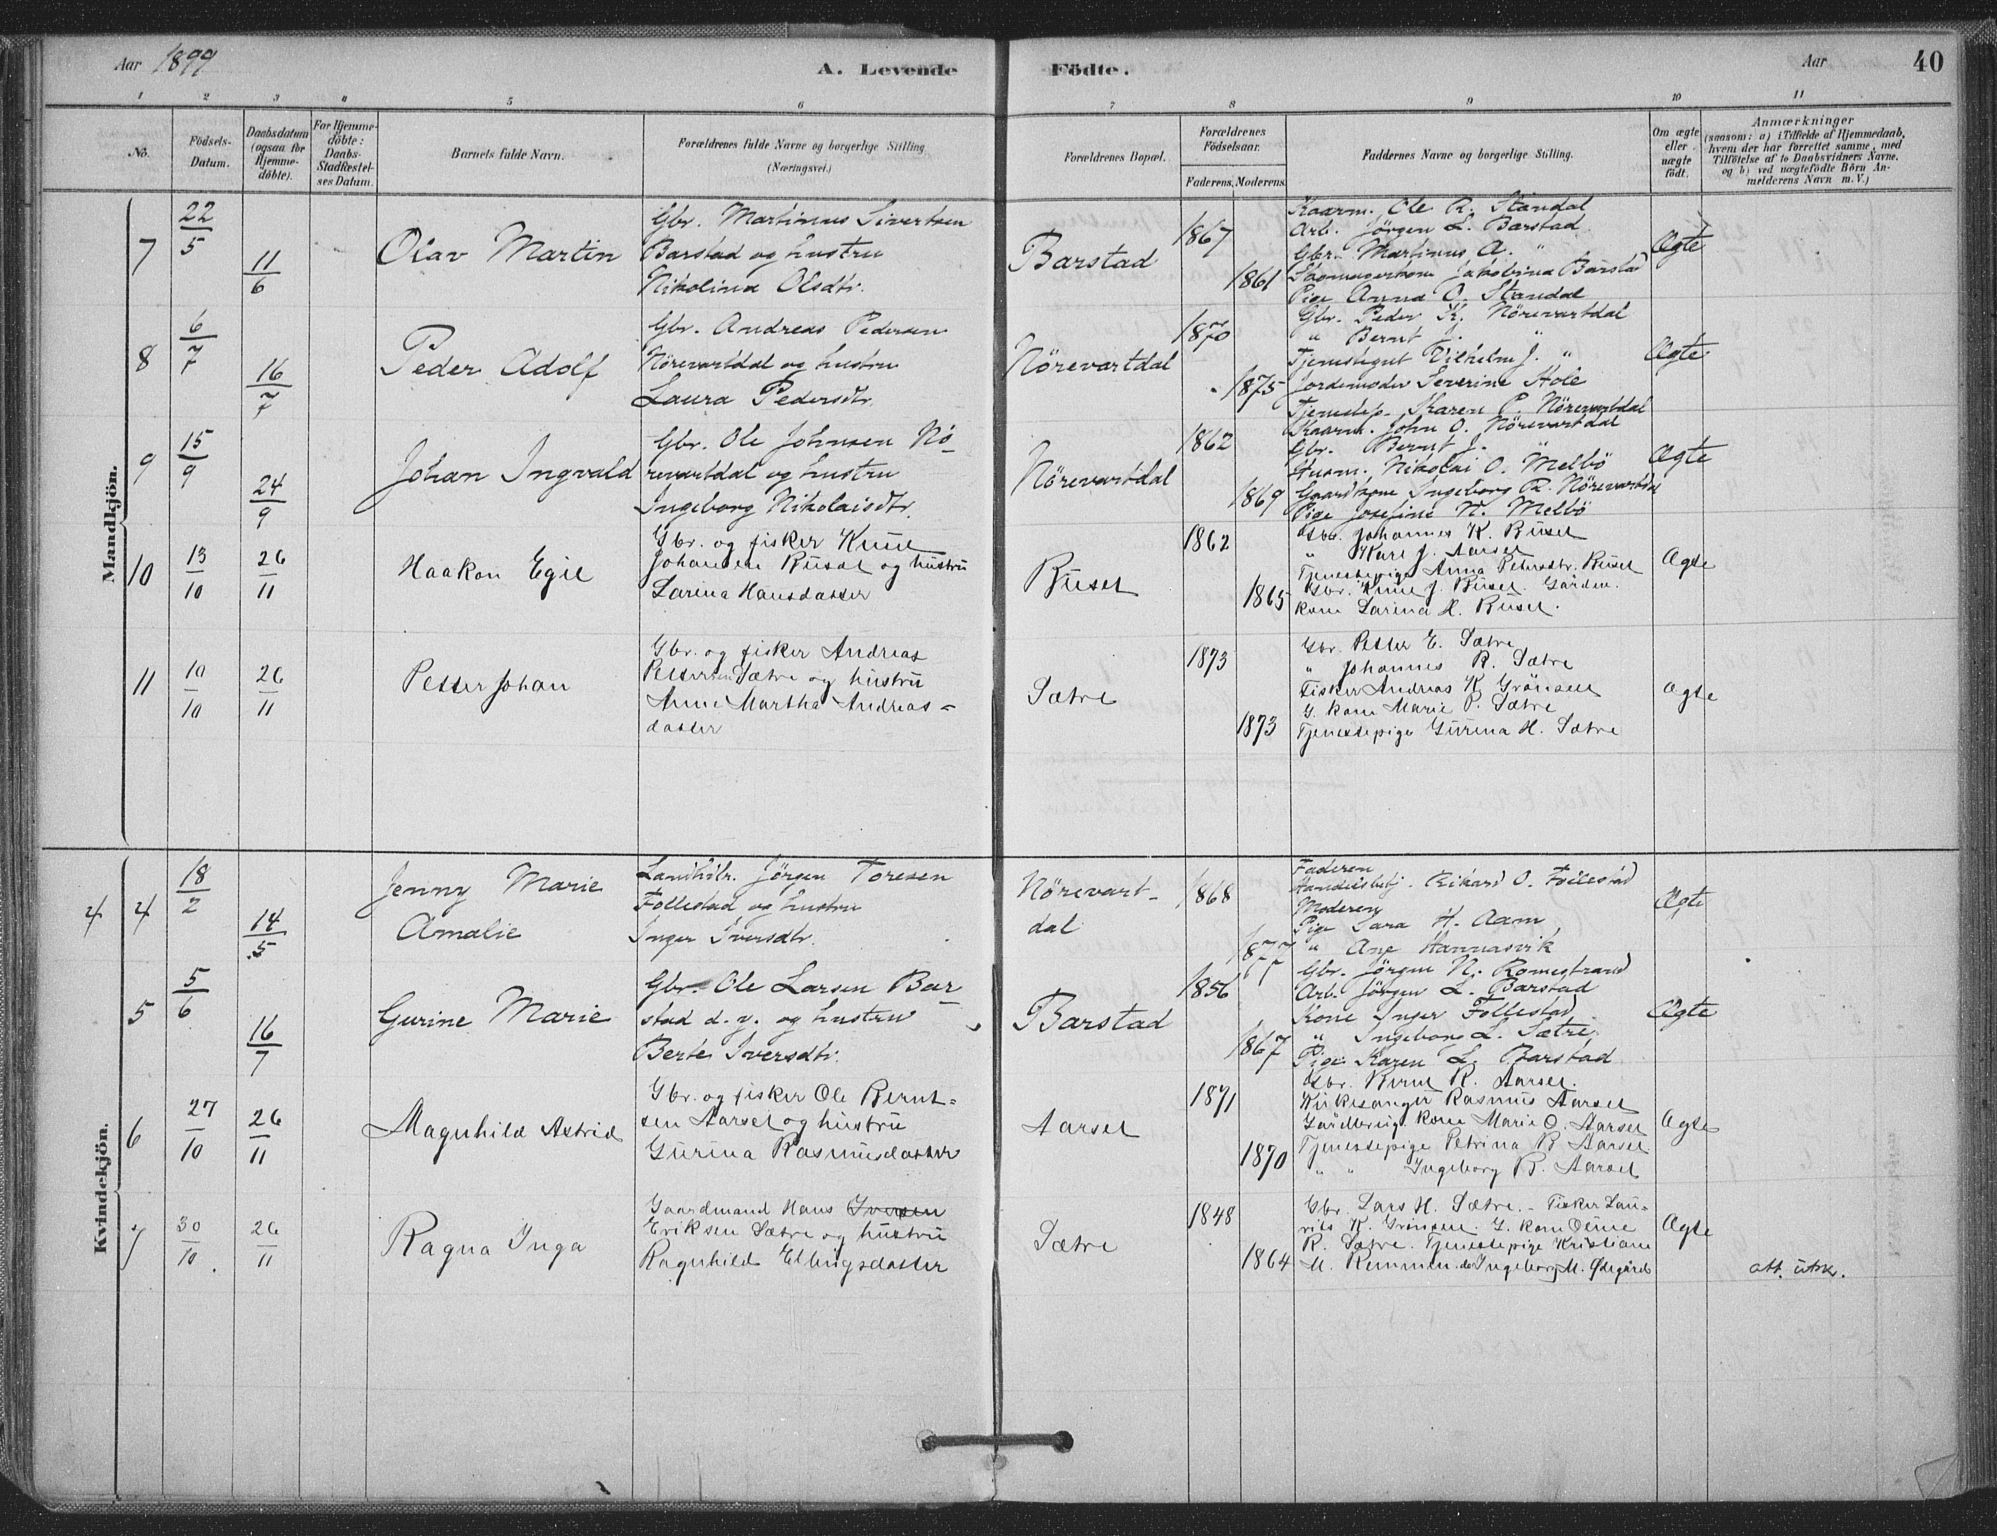 Aar 1899
A. Levende Födte.
Aar
40
1 2 3 4 5 6 7 8 9 10 11
No.
Födsels-Datum.
Daabsdatum (ogsaa for Hjemme-döbte).
For Hjemme-döbte: Daabs-Stadfæstel-ses Datum.
Barnets fulde Navn.
Forældrenes fulde Navne og borgerlige Stilling (Næringsvei.)
Forældrenes Bopæl.
Forældrenes Födselsaar.
Faderens. Moderens.
Faddernes Navne og borgerlige Stilling.
Om ægte eller uægte födt.
Anmærkninger
(saasom: a) i Tilfælde af Hjemmedaab,
hvem der har forrettet samme, med
Tilföielse af to Daabsvidners Navne,
og b) ved uægtefödte Börn An-
melderens Navn m. V.)
Mandkjön.
7
22/5
11/6
Olav Martin
Gbr. Martinus Sivertsen
Barstad og hustru
Nikolina Olsdtr.
Barstad
1867
1861
Kaarm. Ole R. Standal
Arb. Jörgen L. Barstad
Gbr. Martinus A. "
Skomagerkone Jakobina Barstad
Pige Anna O. Standal
Ægte
8
6/7
16/7
Peder Adolf
Gbr. Andreas Pedersen
Nörevartdal og hustru
Laura Pedersdtr.
Nörevartdal
1870
1875
Gbr. Peder K. Nörevartdal
" Bernt J. "
Tjenestegut Vilhelm J. "
Jordemoder Severine Hole
Tjenestep. Karen P. Nörevartdal
Ægte
9
15/9
24/9
Johan Ingvald
Gbr. Ole Johnsen Nö-
revartdal og hustru
Ingeborg Nikolaisdtr.
Nörevartdal
1862
1869
Kaarm. John O. Nörevartdal
Gbr. Bernt J. "
Husm. Nikolai O. Melbö
Gaardkone Ingeborg R. Nörevartdal
Pige Josefine N. Melbö
Ægte
10
13/10
26/11
Haakon Egil
Gbr. og fisker Knut
Johansen Buset og hustru
Larina Hansdatter
Buset
1862
1865
Gbr. Johannes K. Buset
" Kare J. Aarset
Tjenestepige Anna Petersdtr. Buset
Gbr. Knut J. Buset. Gården.
kone Larina H. Buset.
Ægte
11
10/10
26/11
Petter Johan
Gbr. og fisker Andreas
Pettersen Sætre og hustru
Anne Martha Andreas-
datter
Sætre
1873
1873
Gbr. Petter E. Sætre
" Johannes R. Sætre
Fisker Andreas K. Grönsen
G. kone Marie P. Sætre
Tjenestepige Gurina H. Sætre
Ægte
Kvindekjön.
4 4
18/2
14/5
Jenny Marie
Amalie
Landhdlr. Jörgen Toresen
Follestad og hustru
Inger Iversdtr.
Nörevart-
dal
1868
1877
Faderen
Handelsbetj. Rikard O. Follestad
Moderen
Pige Lara H. Aam
" Ane Hannasvik
Ægte
5
5/6
16/7
Gurine Marie
Gbr. Ole Larsen Bar-
stad d. y. og hustru
Berte Iversdtr.
Barstad
1856
1867
Gbr. Jörgen N. Romestrand
Arb. Jörgen L. Barstad
Kone Inger Follestad
" Ingeborg L. Sætre
Pige Karen L. Barstad
Ægte
6
27/10
26/11
Magnhild Astrid
Gbr. og fisker Ole Bernt-
sen Aarset og hustru
Gurina Rasmusdatter
Aarset
1871
1870
Gbr. Bernt R. Aarset.
Kirkesanger Rasmus Aarset
Gårdbrug. kone Marie O. Aarset
Tjenestepige Petrina B. Aarset
" " Ingeborg B. Aarset
Ægte
7
30/10
26/11
Ragna Inga
Gaardmand Hans Iversen
Eriksen Sætre og hustru
Ragnhild Ellingsdatter
Sætre
1848
1864
Gbr. Lars H. Sætre. - Fisker Lau-
rits K. Grönsen. G. kone Oline
R. Sætre. Tjenestepige Kristiane
M. Remmen. do Ingeborg M. Ødegård
Ægte
att. utsk.